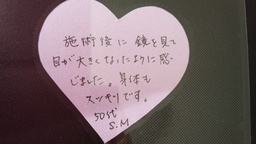 施術後に鏡を見て
目が大きくなったように感
じました。身体も
スッキリです。
50代
S.M